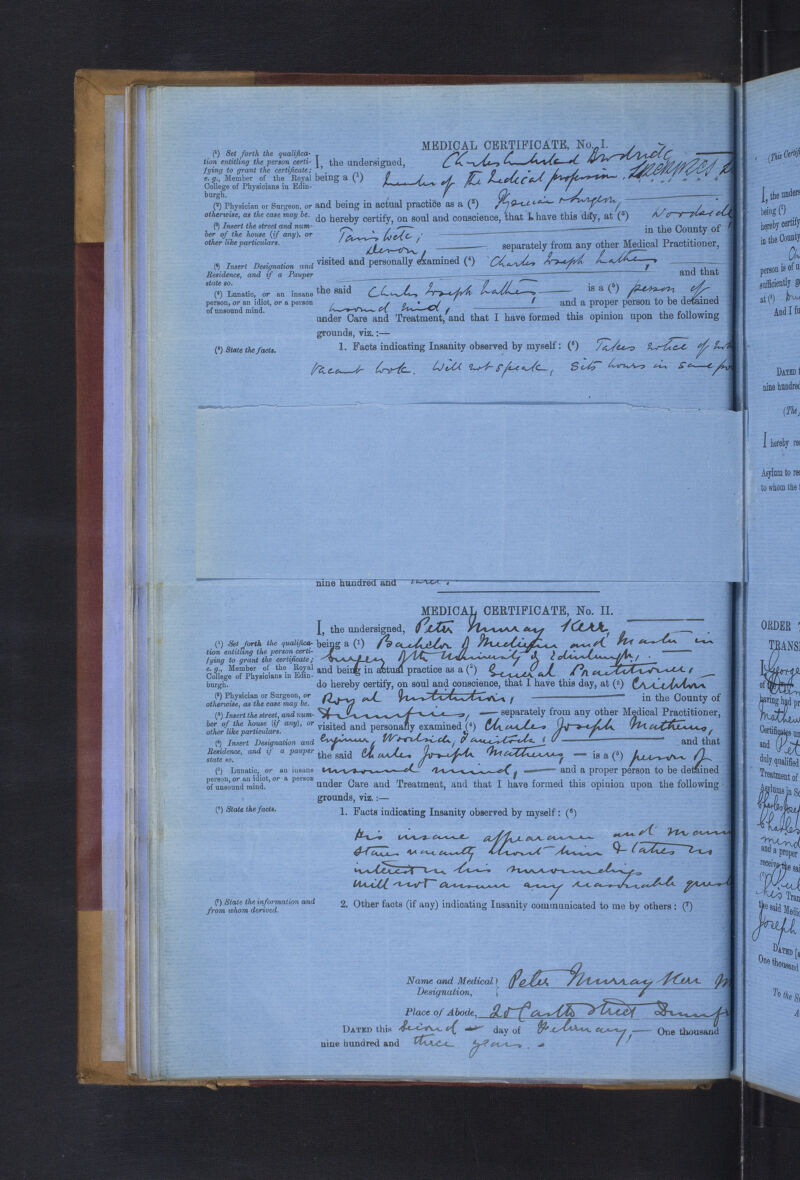 MEDICAL CERTIFICATE, No. I.
(¹) Set forth the qualifica-
tion entitling the person certi-
fying to grant the certificate;
e. g., Member of the Royal
College of Physicians in Edin-
burgh.
(²) Physician or Surgeon, or
otherwise, as the case may be.
(³) Insert the street and num-
ber of the house (if any), or
other like particulars.
(⁴) Insert Designation and
Residence, and if a Pauper
state so.
(⁵) Lunatic, or an insane
person, or an idiot, or a person
of unsound mind.
(⁶) State the facts.
I, the undersigned, Charles
being a (¹) Member of The Medical profession.
and being in actual practice as a (²) Physician & Surgeon,
do hereby certify, on soul and conscience, that I have this day, at (³) Woodside
Tavistock; in the County of
Devon, separately from any other Medical Practitioner,
visited and personally examined (⁴) Charles Joseph Mathews
and that
the said Charles Joseph Mathews is a (⁵) person of
unsound mind, and a proper person to be detained
under Care and Treatment, and that I have formed this opinion upon the following
grounds, viz. :—
1. Facts indicating Insanity observed by myself: (⁶) Takes notice of
Vacant look. Will not speak, Sits hours in same
nine hundred and three.
MEDICAL CERTIFICATE, No. II.
(¹) Set forth the qualifica-
tion entitling the person certi-
fying to grant the certificate;
e. g., Member of the Royal
College of Physicians in Edin-
burgh.
(²) Physician or Surgeon, or
otherwise, as the case may be.
(³) Insert the street, and num-
ber of the house (if any), or
other like particulars.
(⁴) Insert Designation and
Residence, and if a pauper
state so.
(⁵) Lunatic, or an insane
person, or an idiot, or a person
of unsound mind.
(⁶) State the facts.
(⁷) State the information and
from whom derived.
I, the undersigned, Peter Murray Kerr,
being a (¹) Bachelor of Medicine and Master in
Surgery of the University of Edinburgh,
and being in actual practice as a (²) General Practitioner,
do hereby certify, on soul and conscience, that I have this day, at (³) Crichton
Royal Institution, in the County of
Dumfries, separately from any other Medical Practitioner,
visited and personally examined (⁴) Charles Joseph Mathews,
Engineer, Woodside Tavistock, and that
the said Charles Joseph Mathews, — is a (⁵) person of
unsound mind, — and a proper person to be detained
under Care and Treatment, and that I have formed this opinion upon the following
grounds, viz. :—
1. Facts indicating Insanity observed by myself: (⁶)
His insane appearance and mann
Stares vacantly about him & takes no
interest in his surroundings
Will not answer any reasonable quest
2. Other facts (if any) indicating Insanity communicated to me by others: (⁷)
Name and Medical Designation, Peter Murray Kerr M
Place of Abode, 20 Castle Street Dumf
DATED this Second day of February, — One thousand
nine hundred and three years.
(This Certif
I, the under
being (¹)
hereby certify
in the County
person is of u
sufficiently g
at (³)
And I fu
DATED
nine hundred
(The
I hereby re
Asylum to re
to whom the
ORDER
TRANS
George
of
having had pr
Mathew
and Pet
duly qualified
Treatment of
Asylums in Sc
Charles
mind
and a proper
receive the sai
his Tran
the said Medic
Joseph
DATED
One thousand
To the S